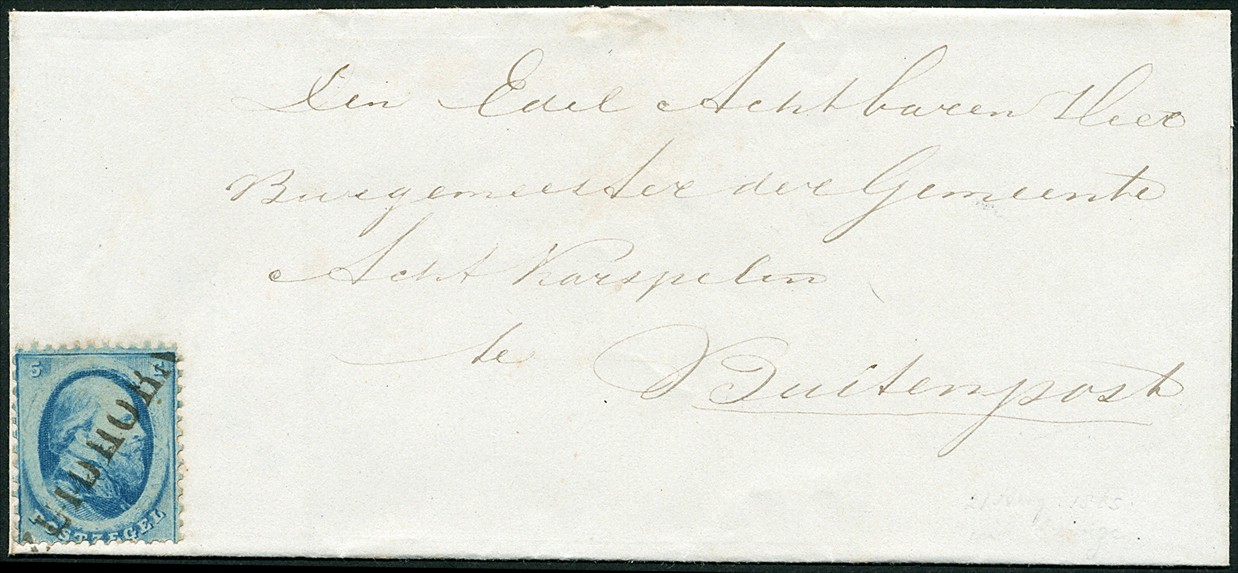 Den Edel Achtbaren Heer
Burgemeester der Gemeente
Acht Karspelen
te Buitenpost
5
STZEGEL